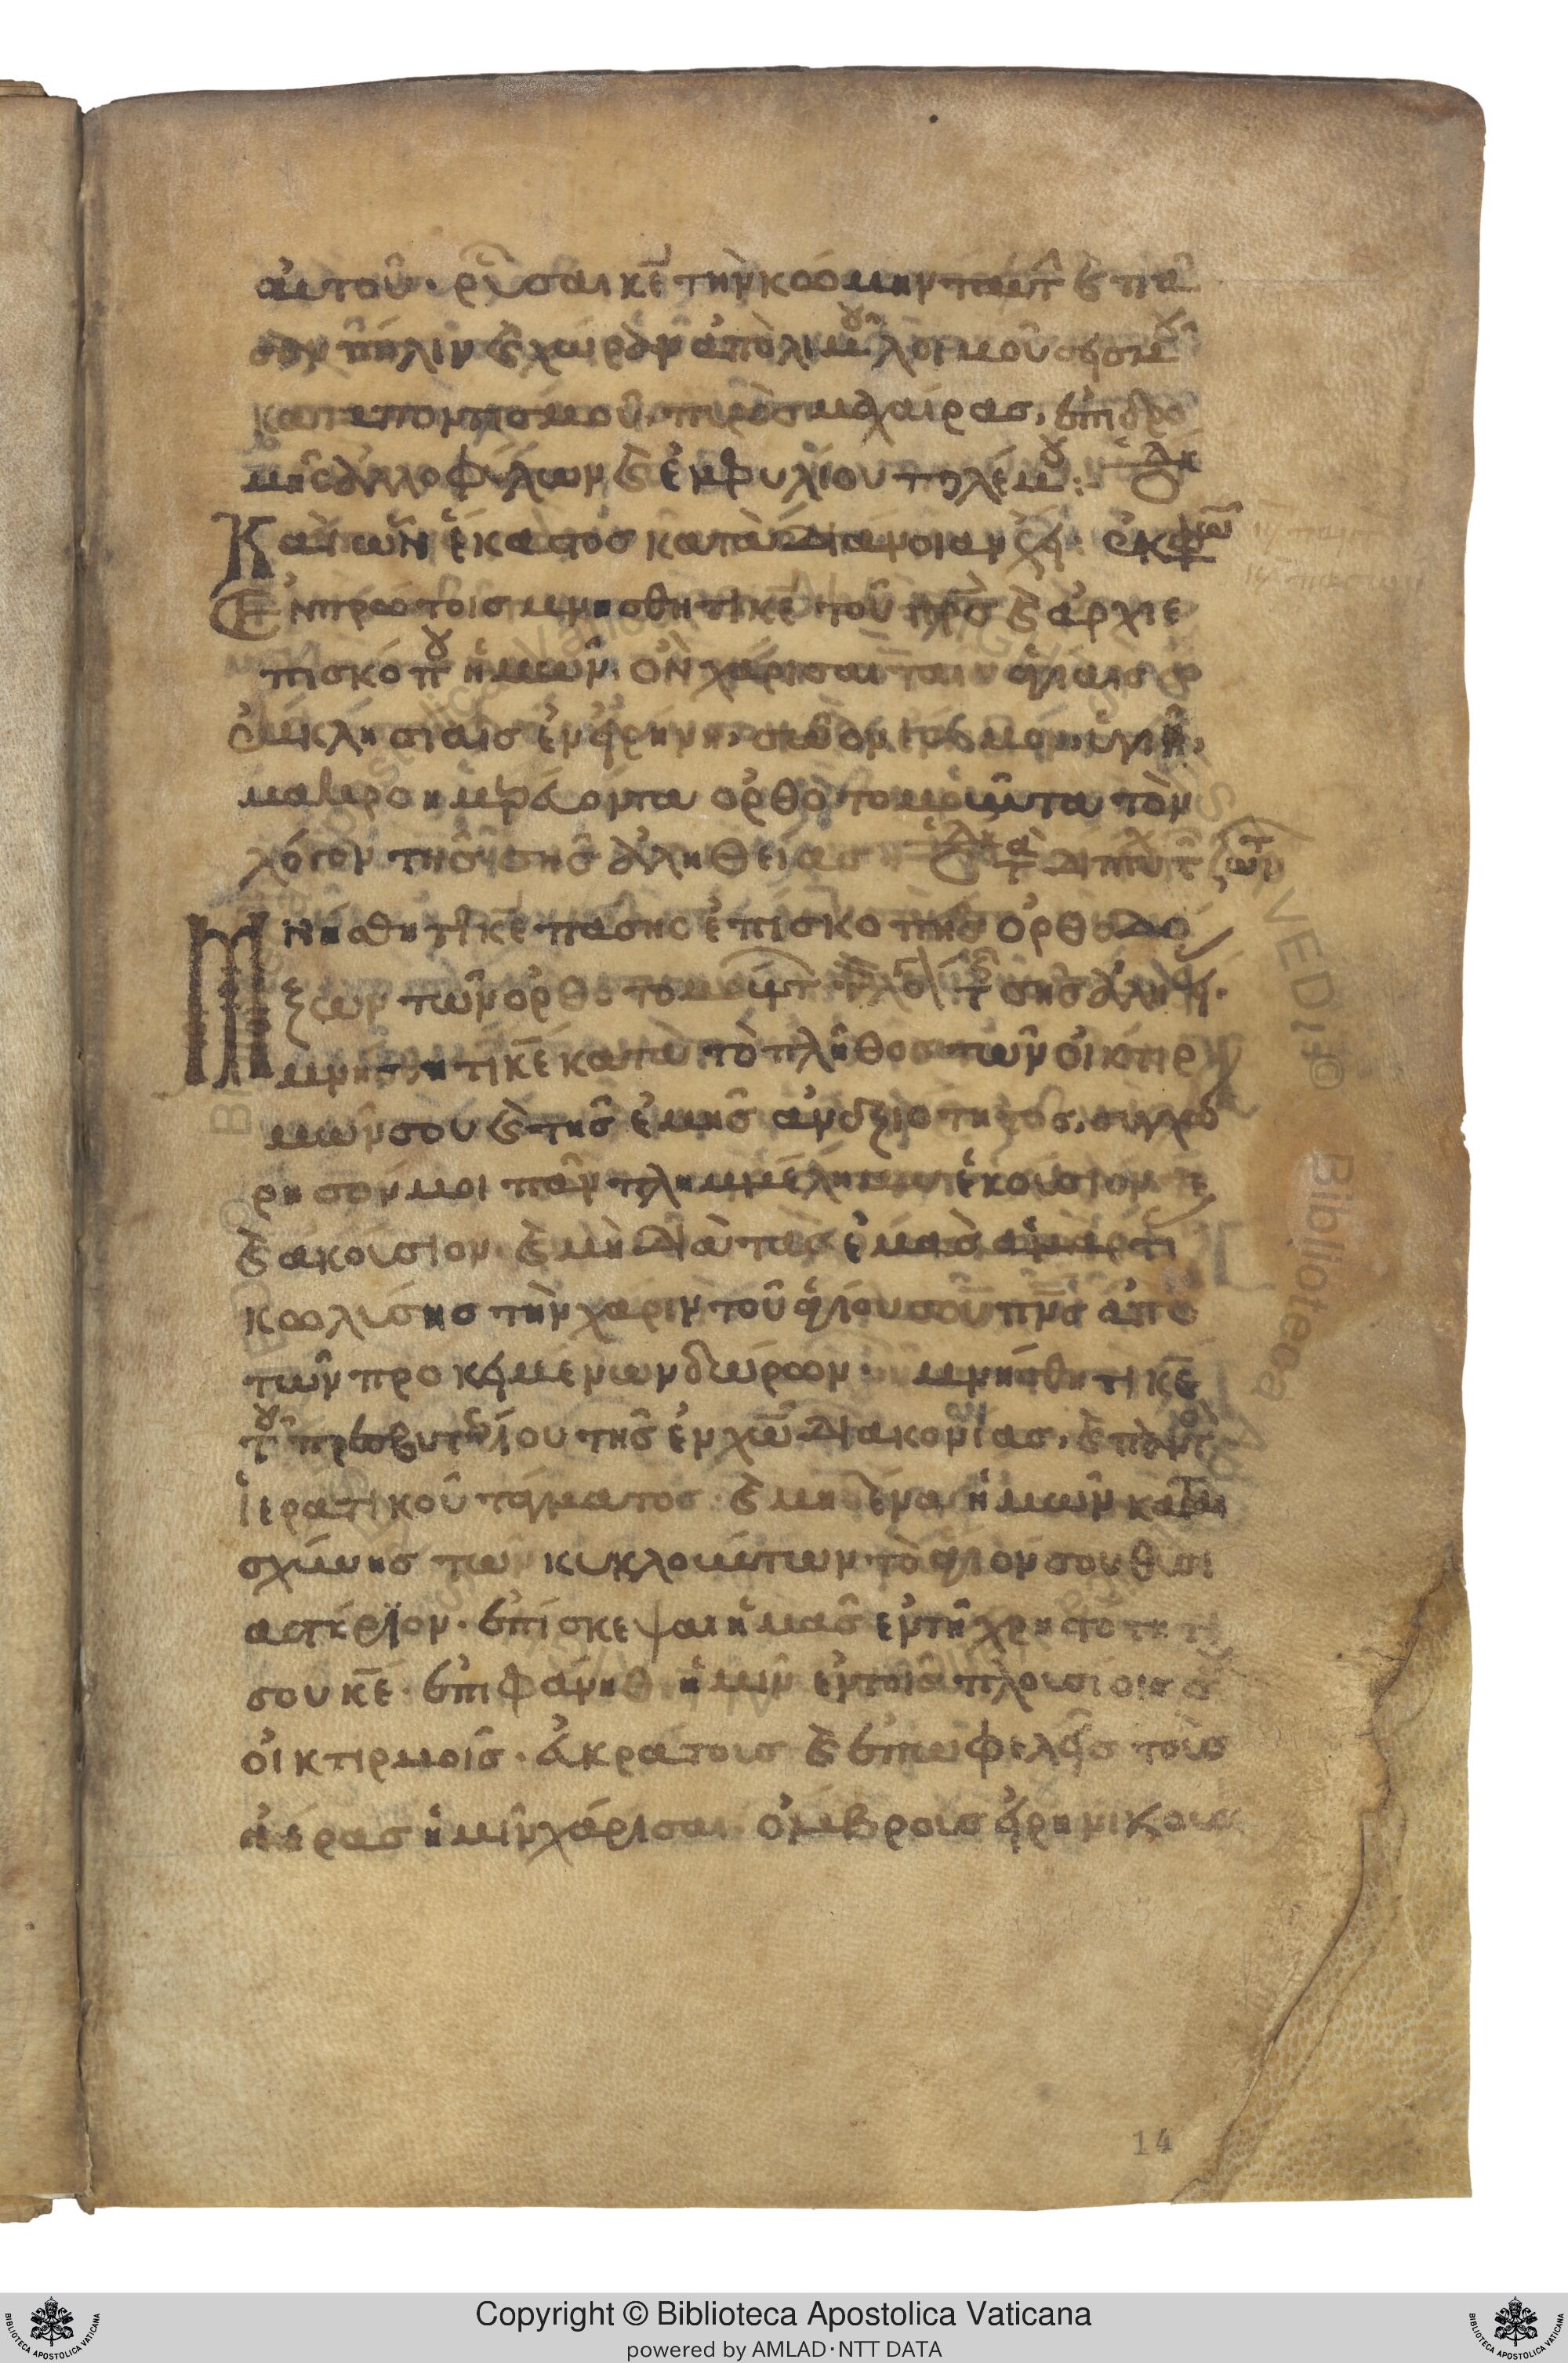 αὐτοῦ· ρῦσαι κε̄ τὴν κώμην ταύτ ϗ πᾶ
σαν πόλιν ϗ χώραν ἀπὸ λιμοῦ λοιμοῦ σεισμοῦ
καταποντισμοῦ, πυρὸς μαχαίρας, ἐπιδρο
μῆς ἀλλοφύλων ϗ ἐμφυλίου πολέμου:
Καὶ ὧν ἕκαστος κατὰ διάνοιαν ἔχει· ἐκφω
Ἐν πρώτοις μνήσθητι κε̄ τοῦ πρσ̄ ϗ ἀρχιε
πισκόπου ἡμῶν· ὃν χάρισαι ταῖς ἁγίαις
ἐκκλησίαις ἐν εἰρήνη, σῶον ἔντιμον ὑγιῆ,
μακροημερεύοντα ὀρθοτομοῦντα τὸν
λόγον τῆς σῆς ἀληθείας
Μνήσθητι κε̄ πάσης ἐπισκοπῆς ὀρθοδό
ξων τῶν ὀρθοτομούντ τ λόγ τ σῆς ἀληθ.
μνήσθητι κε̄ κατὰ τὸ πλῆθος τῶν οἰκτιρ
μῶν σου ϗ τῆς ἐμῆς ἀναξιότητος, συγχώ
ρησόν μοι πᾶν πλημμέλημα ἑκούσιόν τε
ϗ ἀκούσιον· ϗ μὴ διὰ τὰς ἐμὰς ἁμαρτί
κωλύσης τὴν χάριν τοῦ ἁγίου σου πνσ̄ ἀπὸ
τῶν προκειμένων δώρων· μνήσθητι κε̄
τοῦ πρεσβυτερίου τῆς ἐν χω̄ διακονίας, ϗ παντὸς
ἱερατικοῦ τάγματος· ϗ μηδένα ἡμῶν καται
σχύνης τῶν κυκλούντων τὸ ἅγιόν σου θυσι
αστήριον· ἐπίσκεψαι ἡμᾶς ἐν τῆ χρηστότητί
σου κε̄· ἐπιφάνηθι ἡμῖν ἐν τοῖς πλουσίοις σου
οἰκτιρμοῖς· εὐκράτους ϗ ἐπωφελεῖς τοὺς
ἀέρας ἡμῖν χάρισαι· ὄμβρους εἰρηνικοὺς
14
Copyright © Biblioteca Apostolica Vaticana
powered by AMLAD·NTT DATA